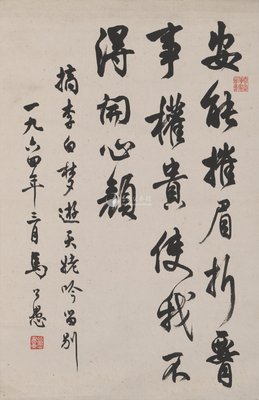 安能摧眉折腰
事權貴使我不
得開心顏
摘李白梦遊天姥吟留别
一九六四年三月馬公愚